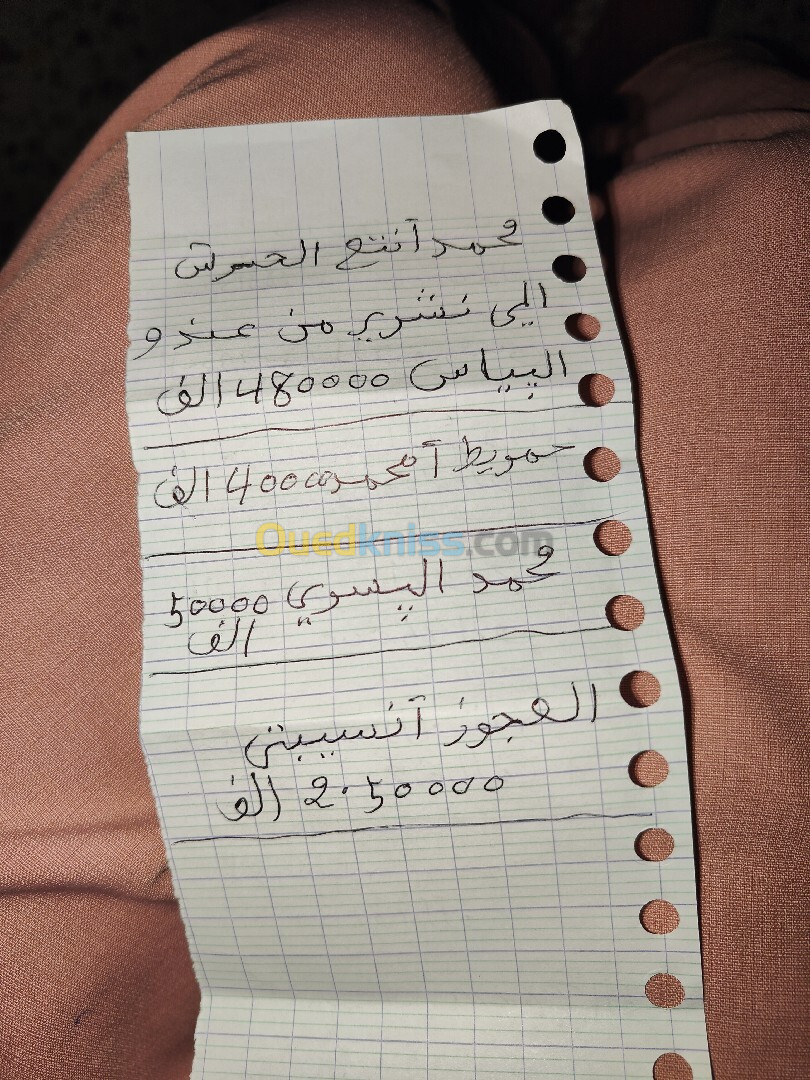 محمد آنتع الحسوش
الي نشري من عندو
البياس 480000 الف
حمويط آمحمد 40000 الف
Ouedkniss.com
محمد اليسوي 50000
الف
العجوز آنسيبتي
2.50000 الف